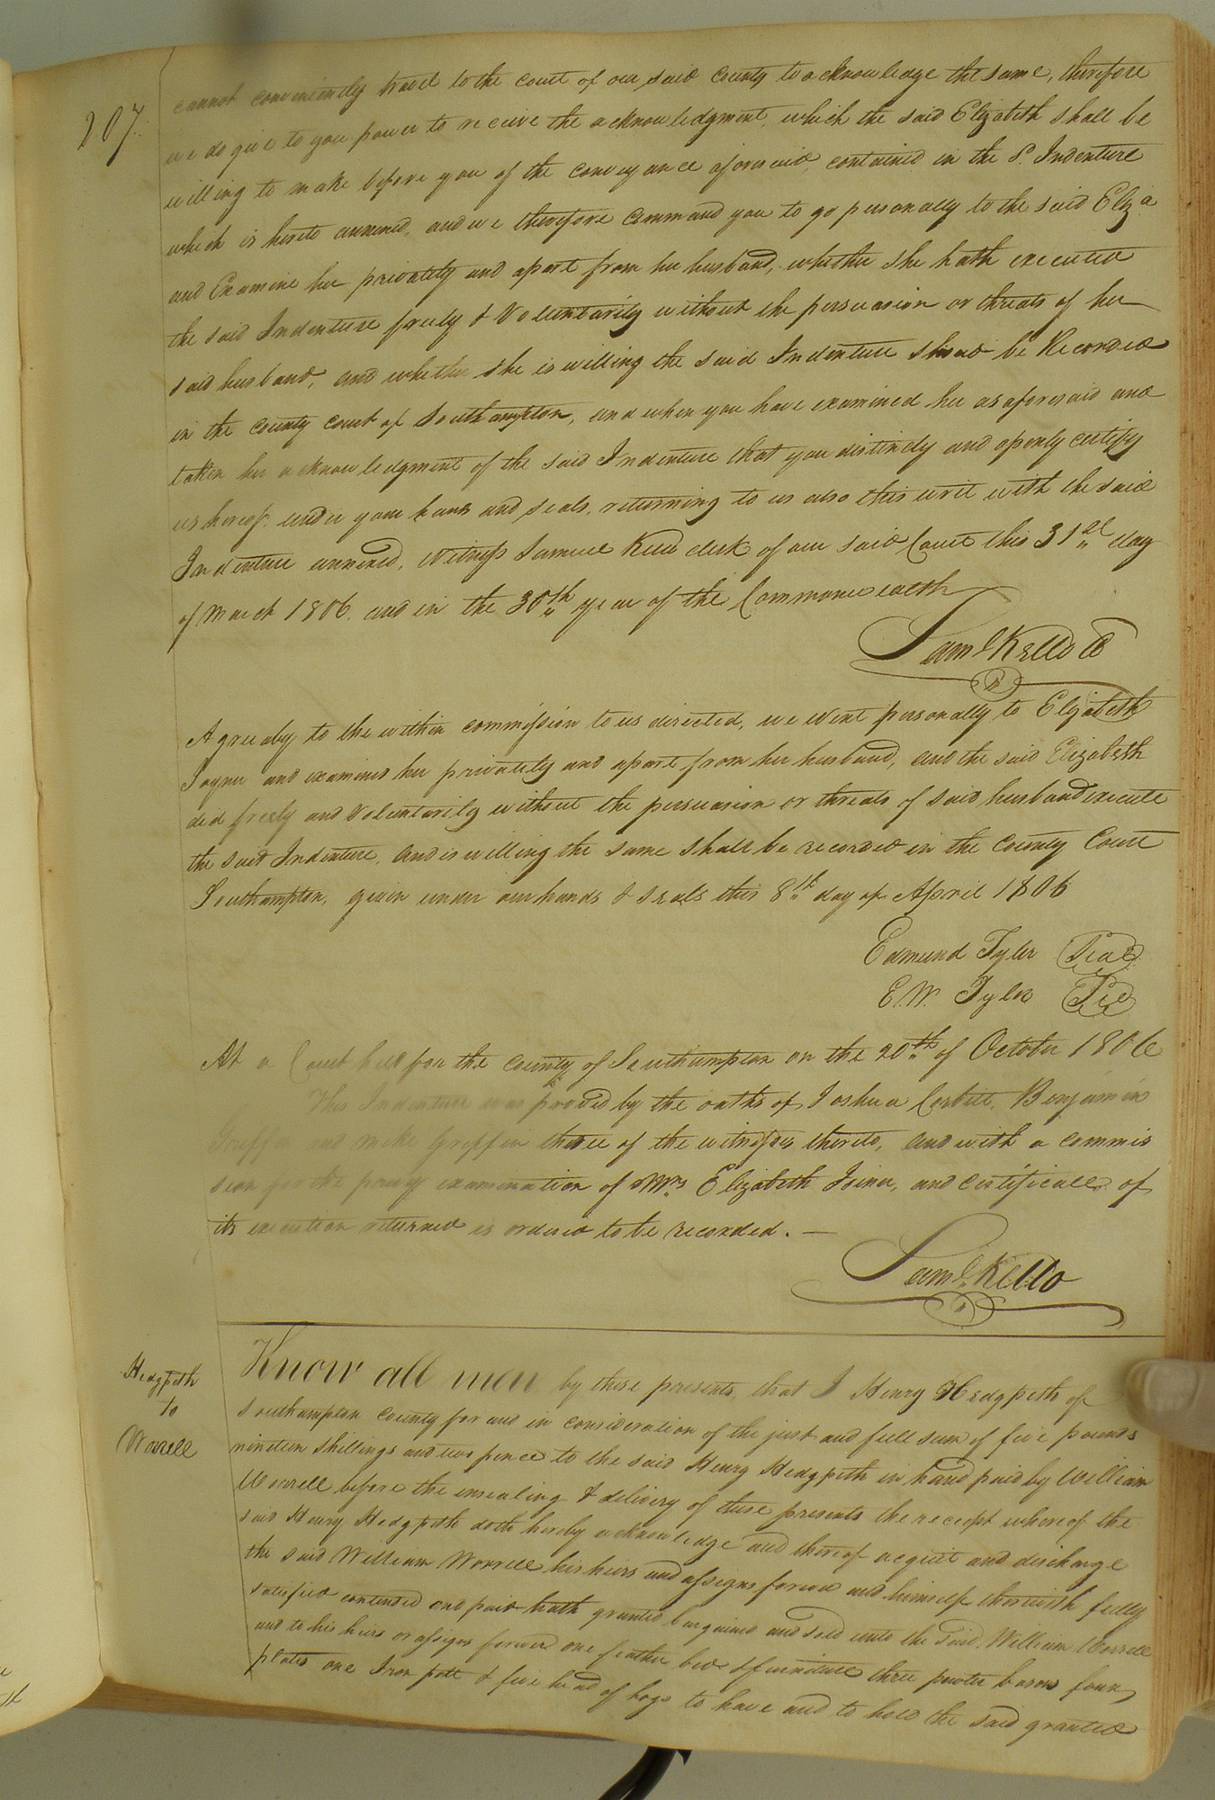 207.
cannot conveniently travel to the court of our said county to acknowledge the same, therefore
we do give to you power to receive the acknowledgment, which the said Elizabeth shall be
willing to make before you of the conveyance aforesaid, contained in the Sd. Indenture
which is hereto annexed, and we therefore command you to go personally to the said Eliza
and Examine her privately and apart from her husband, whether she hath executed
the said Indenture freely & Voluntarily without the persuasion or threats of her
said husband, and whether she is willing the said Indenture shoud be Recorded
in the county court of Southampton, and when you have examined her as aforesaid and
taken her acknowledgment of the said Indenture that you distinctly and openly certify
us hereof under your hands and seals, returning to us also this writ with the said
Indenture annexed, Witness Samuel Kello clerk of our said Court this 31st day
of March 1806. and in the 30th year of the Commonwealth
Saml Kello C
Agreeaby to the within commission to us directed, we went personally to Elizabeth
Joyner and examined her privately and apart from her husband, and the said Elizabeth
did freely and Voluntarily without the persuasion or threats of said husband execute
the said Indenture, and is willing the same shall be recorded in the County Court
Southampton, given under our hands & seals this 8th day of April 1806
Edmund Tyler Seal
E. W. Tyler
At a Court held for the county of Southampton on the 20th of October 1806
This Indenture was proved by the oaths of Joshua Corbitt, Benjamin
Griffin and Griffin three of the witnesses thereto, and with a commis
sion for the privy examination of Mrs Elizabeth Joiner, and certificate of
its execution returned is ordered to be recorded. —
Saml. Kello
Hedgpeth
to
Worrell
Know all men by these presents, that I Henry Hedgpeth of
Southampton county for and in consideration of the just and full sum of five pounds
nineteen shillings and two pence to the said Henry Hedgpeth in hand paid by William
Worrell before the ensealing & delivery of these presents the receipt whereof the
said Henry Hedgpeth doth hereby acknowledge and thereof acquit and discharge
the said William Worrell his heirs and assigns forever and himself therewith fully
satisfied contented and paid hath granted bargained and sold unto the said William Worrell
and to his heirs or assigns forever one feather bed & furniture three pewter basons four
plates one Iron pott & five head of hogs to have and to hold the said granted